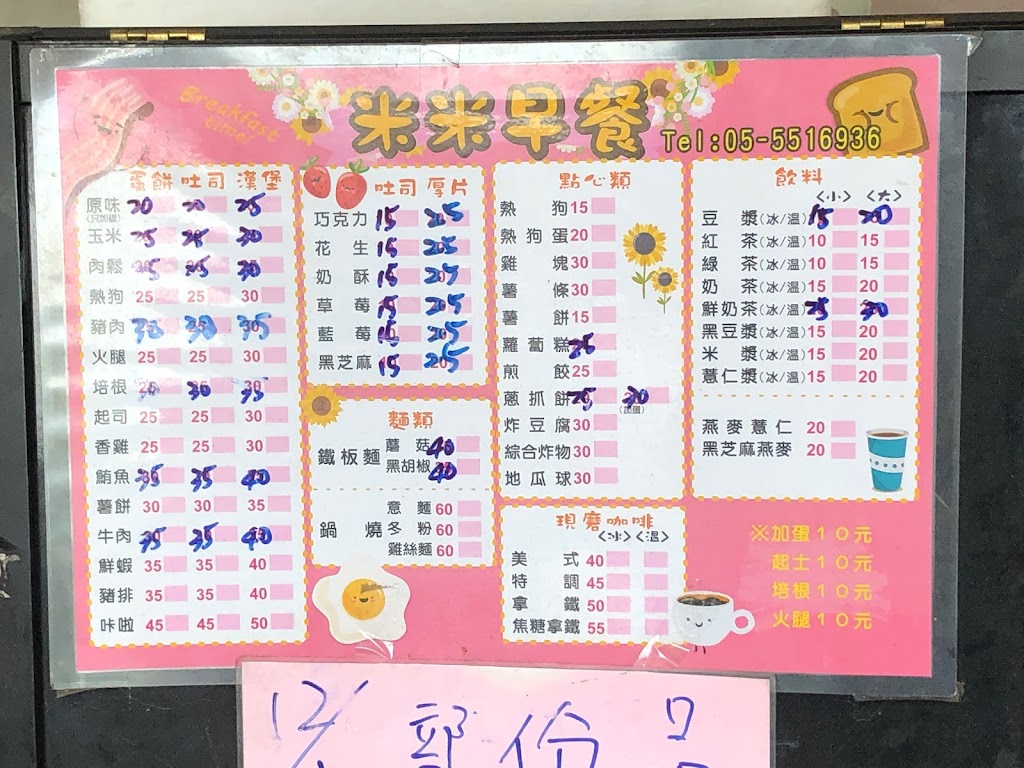 Breakfast time!
米米早餐
Tel:05-5516936
蛋餅 吐司 漢堡
原味 20 20 25
(只加蛋)
玉米 25 25 30
肉鬆 25 25 30
熱狗 25 25 30
豬肉 30 30 35
火腿 25 25 30
培根 30 30 35
起司 25 25 30
香雞 25 25 30
鮪魚 35 35 40
薯餅 30 30 35
牛肉 35 35 40
鮮蝦 35 35 40
豬排 35 35 40
咔啦 45 45 50
吐司 厚片
巧克力 15 25
花生 15 25
奶酥 15 25
草莓 15 25
藍莓 15 25
黑芝麻 15 25
麵類
鐵板麵
蘑菇 40
黑胡椒 40
鍋燒
意麵 60
冬粉 60
雞絲麵 60
點心類
熱狗 15
熱狗蛋 20
雞塊 30
薯條 30
薯餅 15
蘿蔔糕 35
煎餃 25
蔥抓餅 25 30
(加蛋)
炸豆腐 30
綜合炸物 30
地瓜球 30
現磨咖啡
<冰> <溫>
美式 40
特調 45
拿鐵 50
焦糖拿鐵 55
飲料
<小> <大>
豆漿(冰/溫) 15 20
紅茶(冰/溫) 10 15
綠茶(冰/溫) 10 15
奶茶(冰/溫) 15 20
鮮奶茶(冰/溫) 25 30
黑豆漿(冰/溫) 15 20
米漿(冰/溫) 15 20
薏仁漿(冰/溫) 15 20
燕麥薏仁 20
黑芝麻燕麥 20
※加蛋10元
起士10元
培根10元
火腿10元
12/
部份